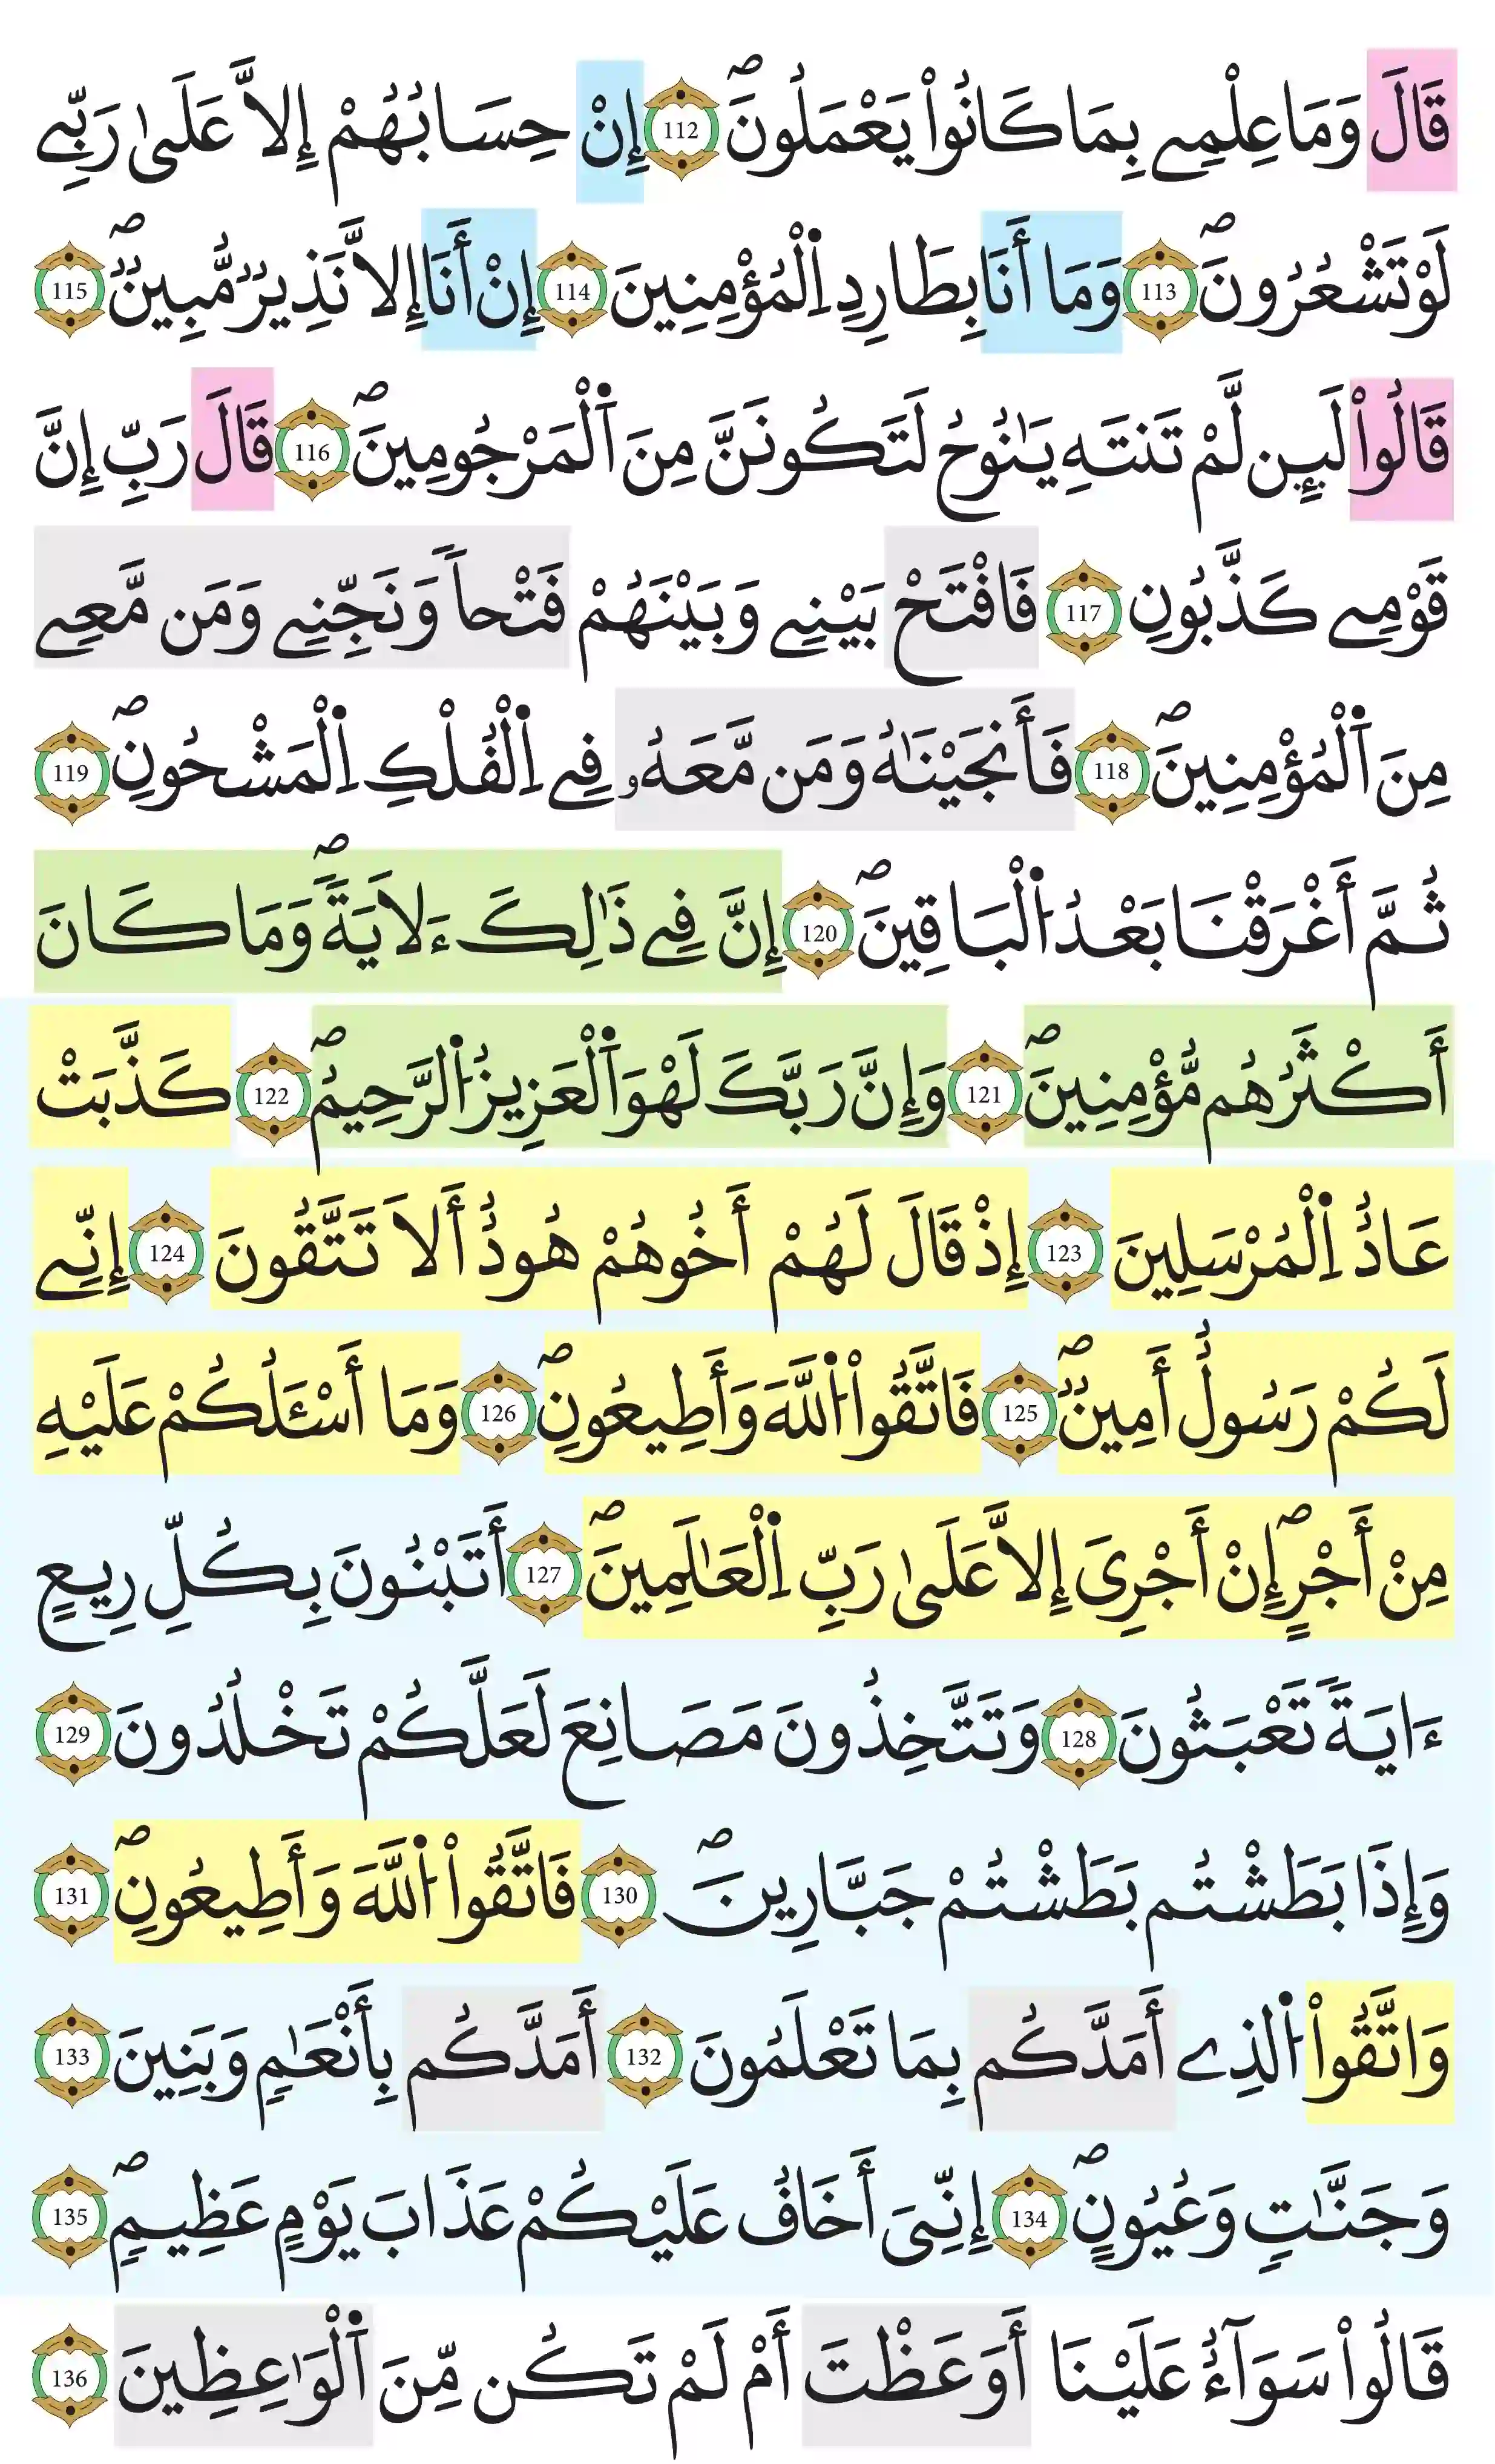 قَالَ وَمَا عِلْمِے بِمَا كَانُواْ يَعْمَلُونَۖ 112 إِنْ حِسَابُهُمْ إِلاَّ عَلَىٰ رَبِّے
لَوْ تَشْعُرُونَۖ 113 وَمَا أَنَا بِطَارِدِ اِ۬لْمُؤْمِنِينَ 114 إِنْ أَنَا إِلاَّ نَذِيرٞ مُّبِينٞۖ 115
قَالُواْ لَئِن لَّمْ تَنتَهِ يَٰنُوحُ لَتَكُونَنَّ مِنَ اَ۬لْمَرْجُومِينَۖ 116 قَالَ رَبِّ إِنَّ
قَوْمِے كَذَّبُونِ 117 فَافْتَحْ بَيْنِے وَبَيْنَهُمْ فَتْحاٗ وَنَجِّنِے وَمَن مَّعِے
مِنَ اَ۬لْمُؤْمِنِينَۖ 118 فَأَنجَيْنَٰهُ وَمَن مَّعَهُۥ فِے اِ۬لْفُلْكِ اِ۬لْمَشْحُونِۖ 119
ثُمَّ أَغْرَقْنَا بَعْدُ اُ۬لْبَاقِينَۖ 120 إِنَّ فِے ذَٰلِكَ ءَلَايَةٗۖ وَمَا كَانَ
أَكْثَرُهُم مُّؤْمِنِينَۖ 121 وَإِنَّ رَبَّكَ لَهْوَ اَ۬لْعَزِيزُ اُ۬لرَّحِيمُۖ 122 كَذَّبَتْ
عَادُ اِ۬لْمُرْسَلِينَ 123 إِذْ قَالَ لَهُمْ أَخُوهُمْ هُودُ أَلاَ تَتَّقُونَ 124 إِنِّے
لَكُمْ رَسُولٌ أَمِينٞۖ 125 فَاتَّقُواْ اُ۬للَّهَ وَأَطِيعُونِۖ 126 وَمَا أَسْـَٔلُكُمْ عَلَيْهِ
مِنْ أَجْرٍۖ إِنْ أَجْرِىَ إِلاَّ عَلَىٰ رَبِّ اِ۬لْعَٰلَمِينَۖ 127 أَتَبْنُونَ بِكُلِّ رِيعٍ
ءَايَةٗ تَعْبَثُونَ 128 وَتَتَّخِذُونَ مَصَانِعَ لَعَلَّكُمْ تَخْلُدُونَ 129
وَإِذَا بَطَشْتُم بَطَشْتُمْ جَبَّارِينَۖ 130 فَاتَّقُواْ اُ۬للَّهَ وَأَطِيعُونِۖ 131
وَاتَّقُواْ اُ۬لذِے أَمَدَّكُم بِمَا تَعْلَمُونَ 132 أَمَدَّكُم بِأَنْعَٰمٖ وَبَنِينَ 133
وَجَنَّٰتٖ وَعُيُونٍۖ 134 إِنِّىَ أَخَافُ عَلَيْكُمْ عَذَابَ يَوْمٍ عَظِيمٖۖ 135
قَالُواْ سَوَآءٌ عَلَيْنَا أَوَعَظْتَ أَمْ لَمْ تَكُن مِّنَ اَ۬لْوَٰعِظِينَ 136